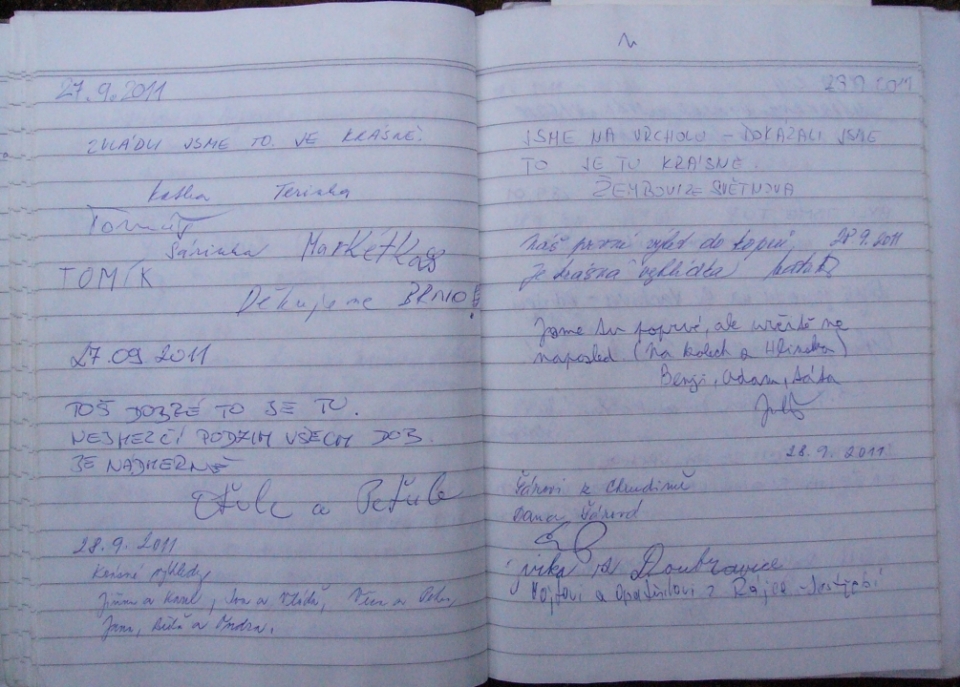 27.9.2011
ZVLÁDLI JSME TO. JE KRÁSNĚ!
Katka Terinka
Tomáš
Sárinka Markétka
TOMÍK
Děkujeme BRNO!
27.09 2011
TOŠ DOBŘÉ TO JE TU.
NEJHEZČÍ PODZIM VŠECH DOB.
JE NÁDHERNĚ
a Peťule
28.9. 2011
Krásné výhledy
Jiřina a Karel,
Jana,
28.9. 2011
JSME NA VRCHOLU – DOKÁZALI JSME
TO JE TU KRÁSNĚ.
SVĚTNOVA
Náš první výlet do kopců, 28.9.2011
Je krásná vyhlídka
Jsme tu poprvé, ale určitě ne
naposled (na kolech z Hlinska)
Benji, Adam, táta
28.9.2011
z Chrudimi
Dana
z Doubravice
Vojtovi a z Rájce-Jestřebí